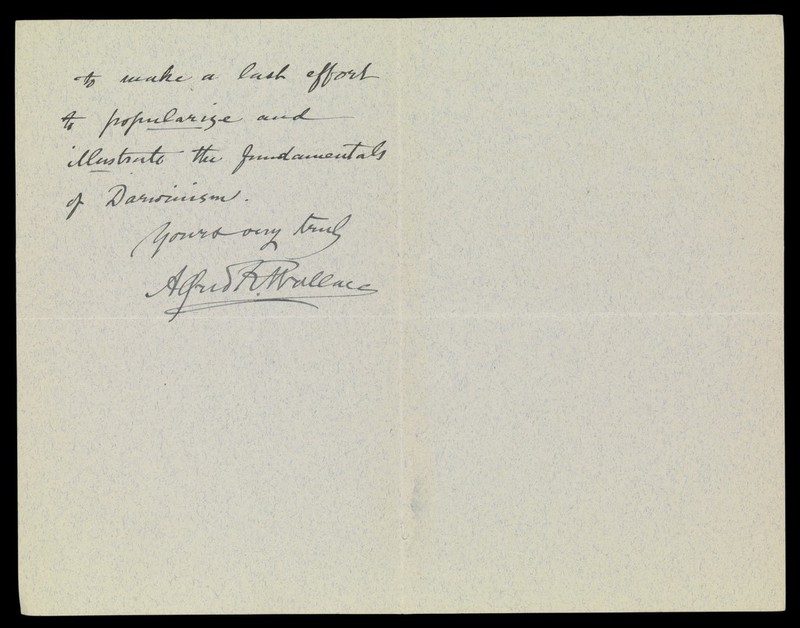 to make a last effort
to popularize and
illustrate the fundamentals
of Darwinism.
Yours very truly
Alfred R. Wallace